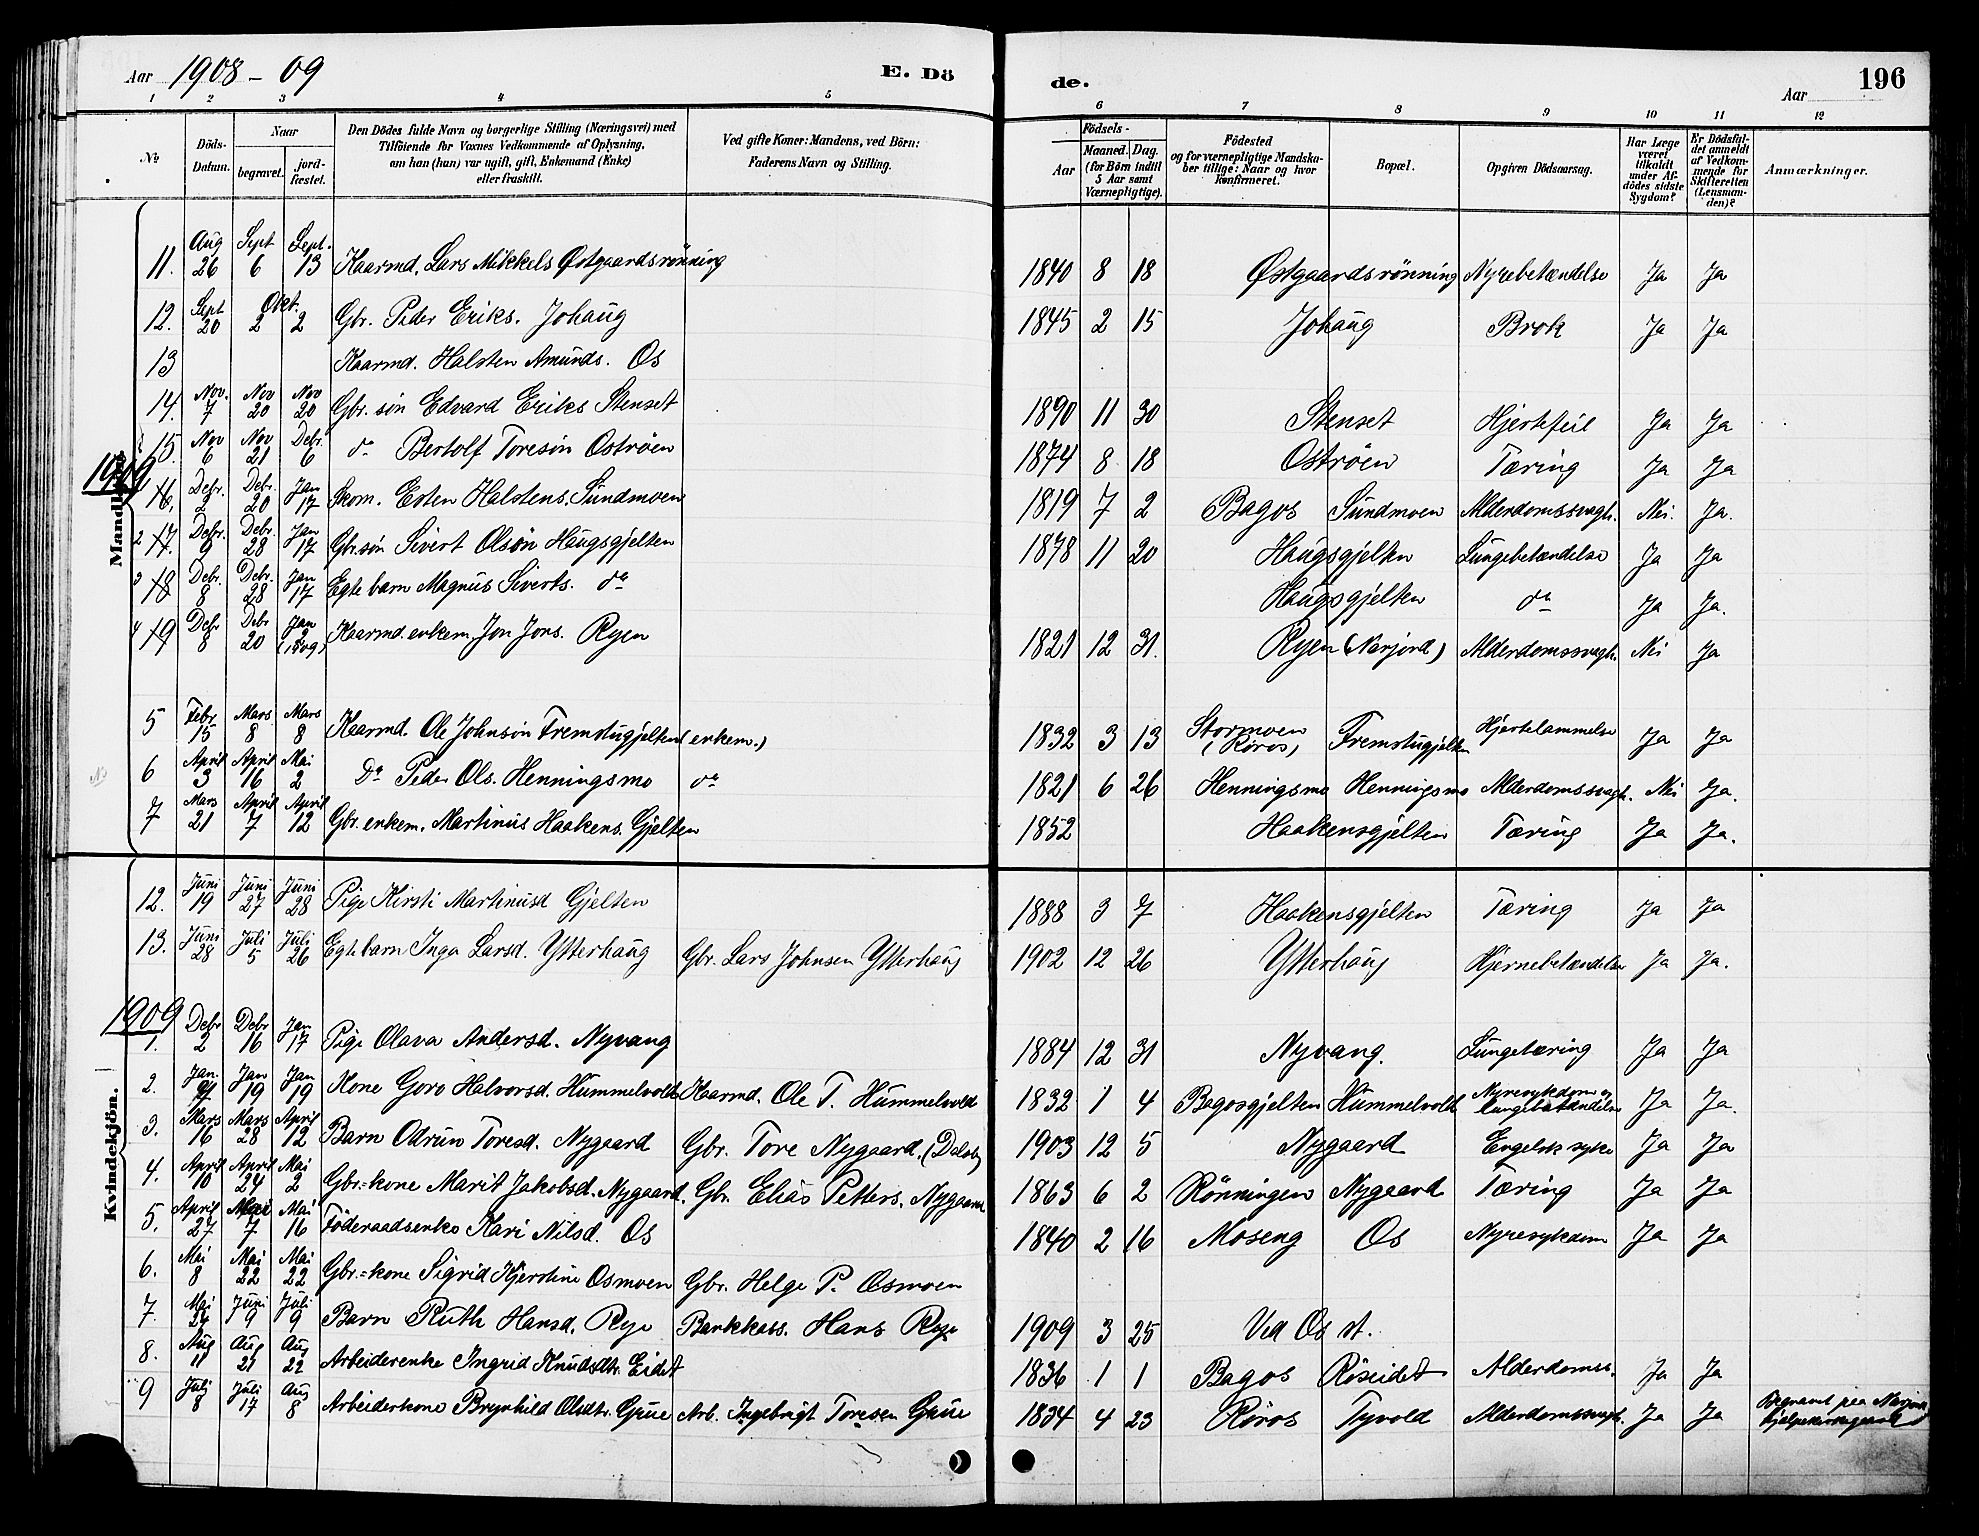 Aar 1908-09 E. Dö de. Aar 196
1 2 3 4 5 6 7 8 9 10 11 12
No
Döds-Datum.
Naar
begravet.
jordfæstet.
Den Dödes fulde Navn og borgerlige Stilling (Næringsvei) med
Tilföiende for Voxnes Vedkommende af Oplysning,
om han (hun) var ugift, gift, Enkemand (Enke)
eller fraskilt.
Ved gifte Koner: Mandens, ved Börn:
Faderens Navn og Stilling.
Födsels-
Aar
Maaned. Dag.
(for Börn indtil
5 Aar samt
Værnepligtige).
Födested
og for værnepligtige Mandskaber tillige: Naar og hvor
konfirmeret.
Bopæl.
Opgiven Dödsaarsag.
Har Læge
været
tilkaldt
under Afdödes sidste
Sygdom?
Er Dödsfaldet anmeldt
af Vedkommende for
Skifteretten
(Lensmanden)?
Anmærkninger.
Mandkjön.
11. Aug 26 Sept 6 Sept. 13 Kaarmd. Lars Mikkels Østgaardsrönning 1840 8 18 Østgaardsrönning Nyrebetændelse Ja Ja
12. Sept 20 Okt. 2 2 Gbr. Peder Eriks. Johaug 1845 2 15 Johaug Brok Ja Ja
13 Kaarmd. Halsten Amunds. Os
14. Nov. 7 Nov 20 Nov 20 Gbr. sön Edvard Eriks Stenset 1890 11 30 Stenset Hjertefeil Ja Ja
15. Nov 6 Nov 21 Debr. 6 do Bertolf Toresön Oströen 1874 8 18 Oströen Tæring Ja Ja
1909
1 16. Debr. 2 Debr. 20 Jan 17 Skom. Esten Halstens. Sundmoen 1819 7 2 Bagos Sundmoen Alderdomssvagh. Nei. Ja.
2 17. Debr. 9 Debr. 28 Jan 17 Gbr. sön Sivert Olsön Haugsgjelten 1878 11 20 Haugsgjelten Lungebetændelse Ja Ja
3 18 Debr. 8 Debr. 28 Jan 17 Egte barn Magnus Siverts. do Haugsgjelten do Ja Ja.
4 19 Debr 8 Debr 20 Jan 2 (1909) Kaarmd. enkem. Jon Jons. Ryen 1821 12 31. Ryen (Narjord) Alderdomssvagh. Nei Ja
5 Febr. 15 Mars 8 Mars 8 Kaarmd. Ole Johnsön Fremstugjelten (enkem.) 1832 3 13 Stormoen (Röros) Fremstugjelten Hjertelammelse Ja Ja
6 April 3 April 16 Mai 2 Do Peder Ols. Henningsmo do 1821 6 26 Henningsmo Henningsmo Alderdomssvagh. Nei Ja.
7 Mars 21 April 7 April 12 Gbr. enkem. Martinus Haakens. Gjelten 1852 Haakensgjelten Tæring Ja Ja.
Kvindekjön.
12. Juni 19 Juni 27 Juni 28 Pige Kirsti Martinusd Gjelten 1888 3 7 Haakensgjelten Tæring Ja Ja
13. Juni 28 Juli 5 Juli 26 Egte barn Inga Larsd. Ytterhaug Gbr. Lars Johnsen Ytterhaug 1902 12 26 Ytterhaug Hjernebetændelse Ja Ja.
1909
1. Debr 2 Debr 16 Jan 17 Pige Olava Andersd. Nyvang 1884 12 31 Nyvang. Lungetæring Ja Ja
2. Jan. Jan 19 Jan 19 Kone Goro Halvorsd. Hummelvold Kaarmd. Ole T. Hummelvold 1832 1 4 Bagosgjelten Hummelvold Nyresykdom og lungebetændelse Ja Ja.
3. Mars 16 Mars 28 April 12 Barn Odrun Toresd. Nygaard Gbr. Tore Nygaard. 1903 12 5 Nygaard Engelsk syke Ja Ja
4. April 10 April 24 Mai 2 Gbr.=kone Marit Jakobsd. Nygaard. Gbr. Elias Petters. Nygaard 1863 6 2 Rönningen Nygaard Tæring Ja Ja
5. April 27 Mai 7 Mai 16 Föderaadsenke Kari Nilsd. Os 1840 2 16 Moseng Os Nyresykdom Ja Ja
6. Mai 8 Mai 22 Mai 22 Gbr.=kone Sigrid Kjerstine Osmoen Gbr. Helge P. Osmoen
7. Mai 24 Juni 9 Juli 9 Barn Ruth Hansd. Rye Bankkass. Hans Rye 1909 3 25 Ved Os st.
8. Aug 11 Aug 21 Aug 22 Arbeiderenke Ingrid Knudsdtr. Eidet 1836 1 1 Bagos Röseidet Alderdomss. Ja Ja
9 Juli 8 Juli 17 Aug 8 Arbeiderkone Brynhild Olsdtr. Grue Arb. Ingebrigt Toresen Grue 1834 4 23 Röros Tyvold Alderdomssvagh. Ja Ja Begravet paa Narjord hjælpekirkegaard